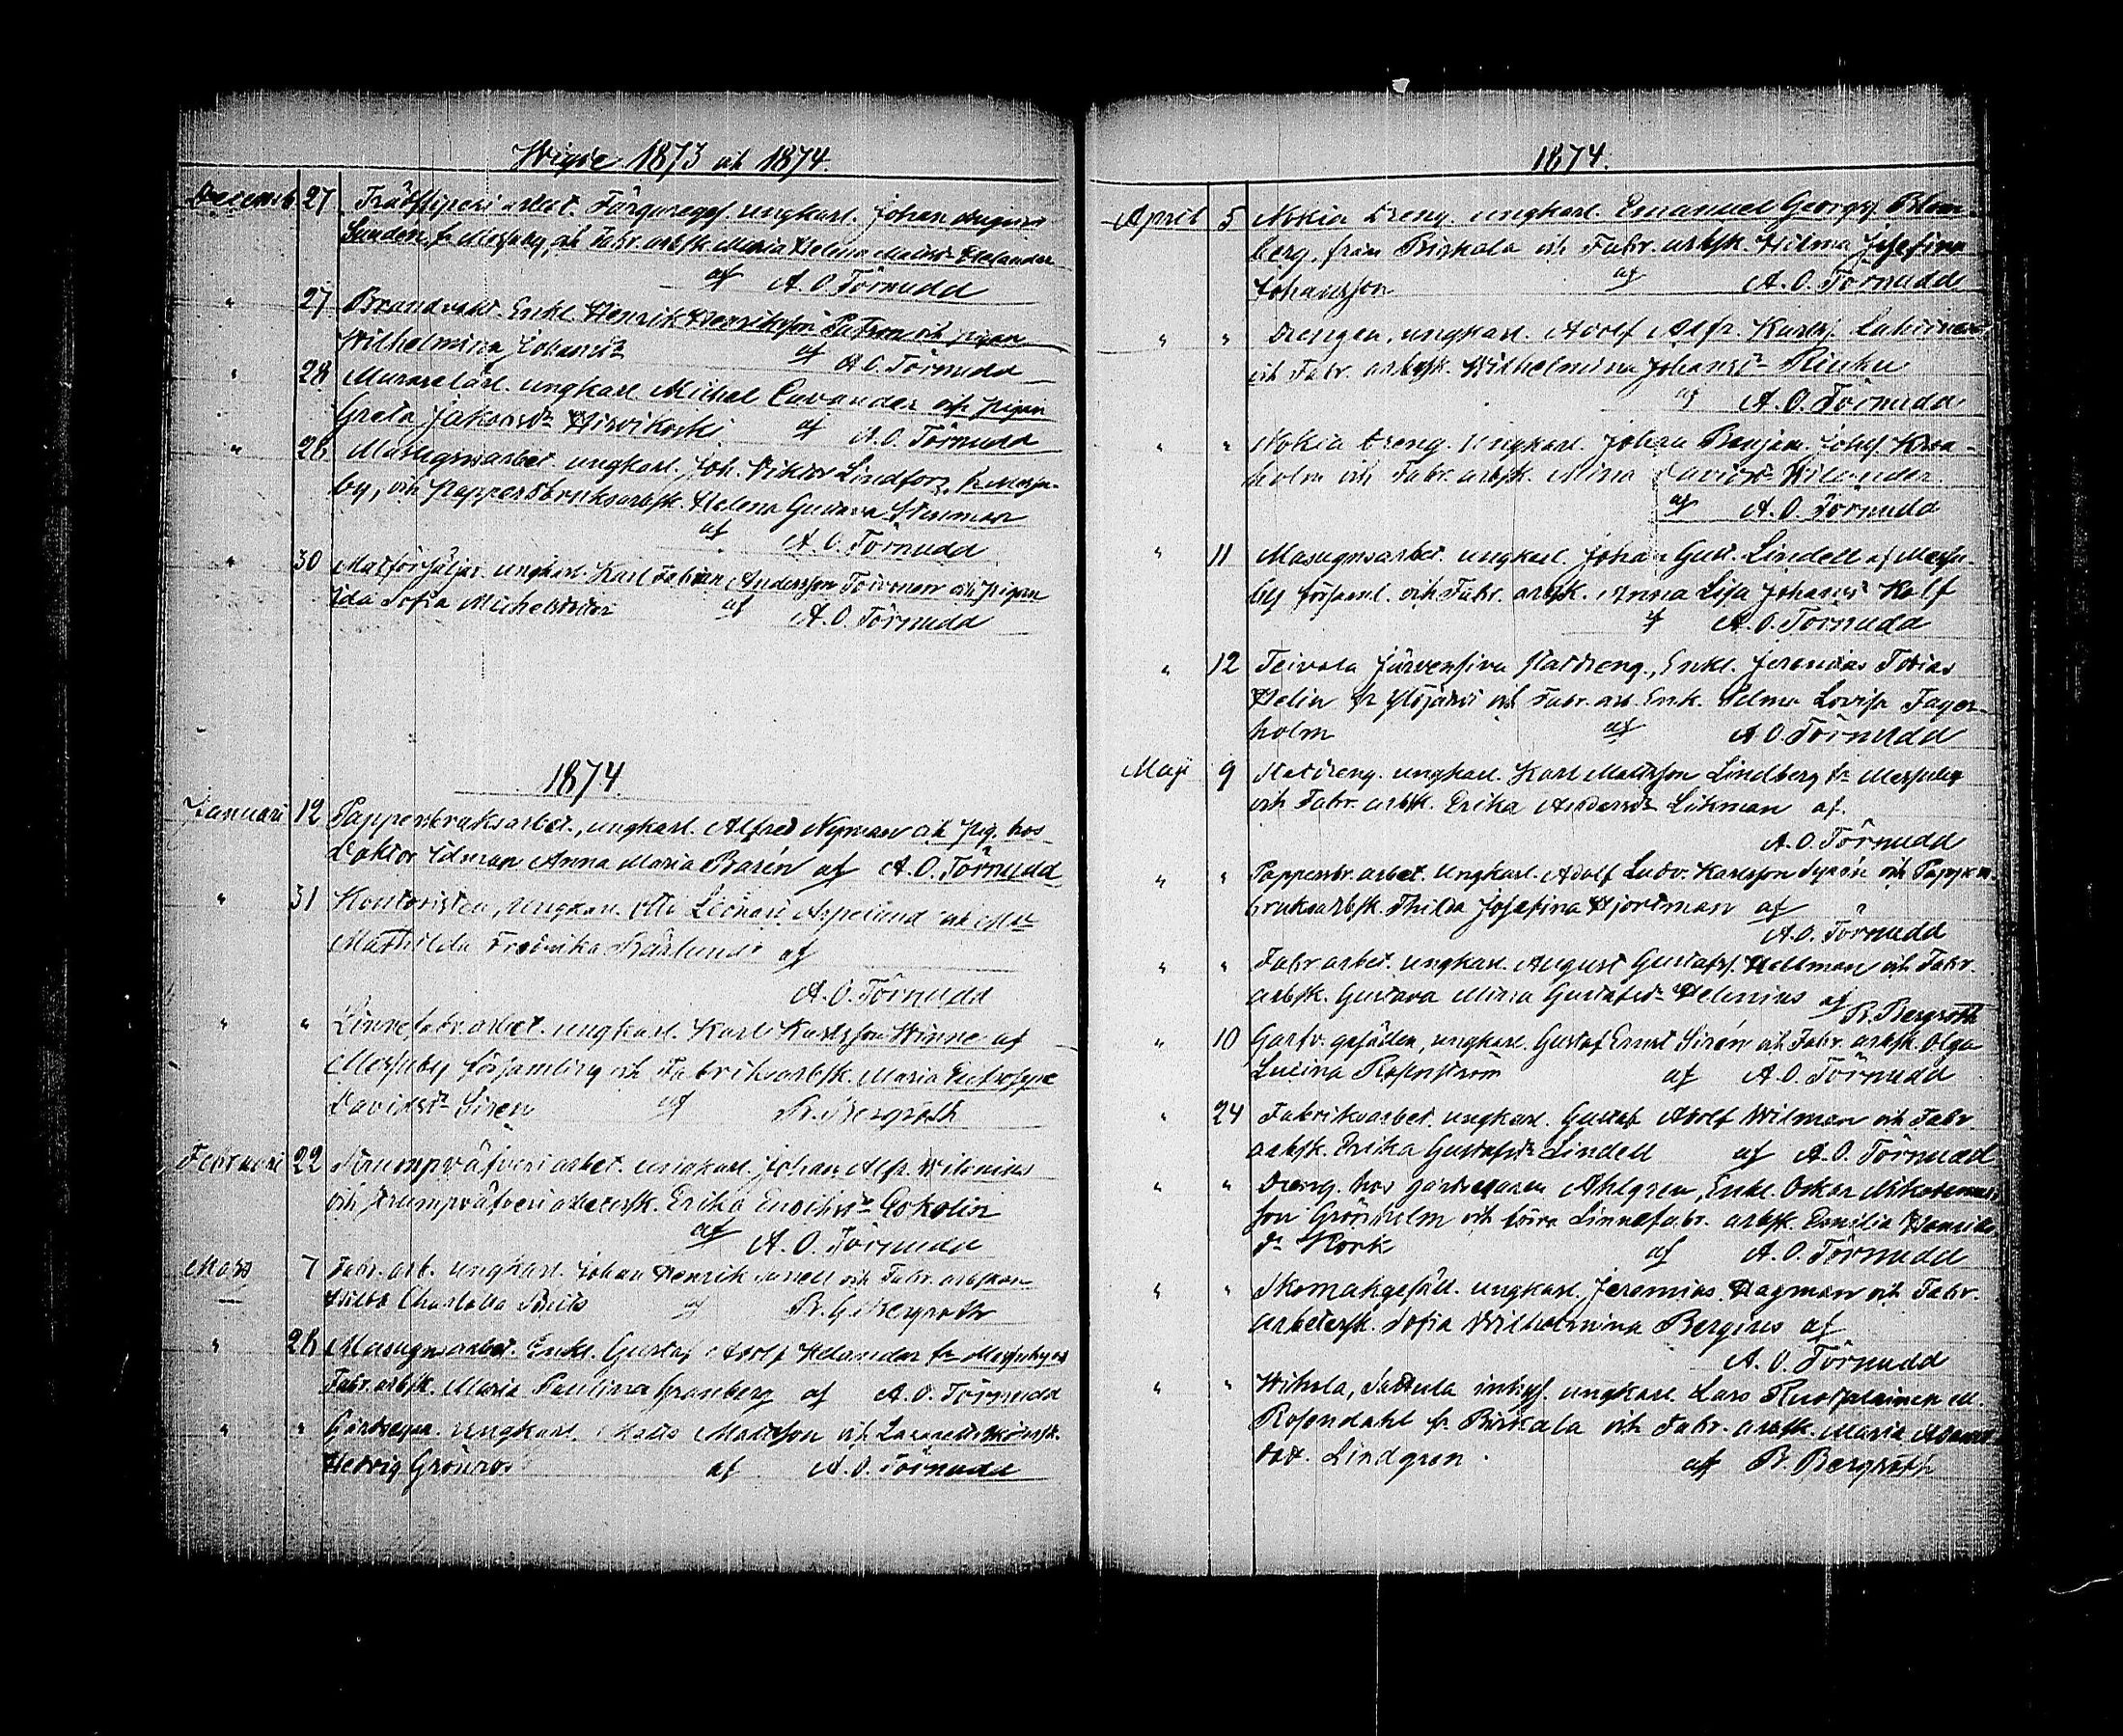 Wigde 1873 och 1874.
Decemb 27 Trädsliperi arbet. Färgaregess. ungkarl. Johan August
Sunden fr Messuby, och Fabr. arbsk. Maria Helena Mattsdr Helander
af A. O. Törnudd
" 27 Brandvakt. Enkl. Henrik Henriksson Patron och pigan
Wilhelmina Johansdr af A. O. Törnudd
" 28 Murarelärl. ungkarl Michel Cavander och pigan
Greta Jakobsdr Hirvikoski af A. O. Törnudd
" 28 Masugnsarbet. ungkarl. Joh. Viktor Lindfors, fr Messu-
by, och Pappersbruksarbsk. Helena Gustava Stenman
af A. O. Törnudd
" 30 Matförsäljar. ungkarl. Karl Fabian Andersson Toivonen och pigan
Ida Sofia Michelsdotter af A. O. Törnudd
1874.
Januari 12 Pappersbruksarbet., ungkarl. Alfred Nyman och pig. hos
Doktor Idman Anna Maria Basén af A. O. Törnudd
" 31 Kontoristen, ungkarl. Otto Leonard Aspelund och
Mathilda Fredrika af
A. O. Törnudd
" " Linnefabr. arbet. ungkarl. Karl Karlsson Winne af
Messuby församling och Fabriksarbsk. Maria
Davidsdr Siren af R. Bergroth
Februari 22 Strumpväfveriarbet. ungkarl. Johan Alfr. Wilenius
och strumpväfveriarbetersk. Erika
af A. O. Törnudd
Mars 7 Fabr. arb. ungkarl. Johan Henrik och Fabr. arbskan
Charlotta af R. G. Bergroth
" 28 Masugnsarbet. Enkl. Gustaf Adolf Helander fr Messuby och
Fabr. arbsk. Maria Paulina Granberg af A. O. Törnudd
" " Gårdsegar. ungkarl. Matts Mattsson och
Hedvig Grönroos af A. O. Törnudd
1874.
April 5 Nokia dreng. ungkarl. Emanuel Georgss. Blom-
berg, från Birkala och Fabr. arbsk. Hilma Josefina
Johansson af A. O. Törnudd
" " Drengen, ungkarl. Adolf Alfr. Karlss.
och Fabr. arbsk. Wilhelmina Johansdr
af A. O. Törnudd
" " Nokia dreng. ungkarl. Johan Benjam. Johss.
holm och Fabr. arbsk. Mina Davidsdr Kilander.
af A. O. Törnudd
" 11 Masugnsarbet. ungkarl. Johan Gust. Lindell af Messu-
by församl. och Fabr. arbsk. Anna Lisa Johansdr Kalf
af A. O. Törnudd
" 12 Teivala Järvensivu statdreng., Enkl. Jeremias Tobias
Helin fr Ylöjärvi och Fabr. arb. Enk. Selma Lovisa Fager-
holm af A. O. Törnudd
Maji 9 Statdreng. ungkarl. Karl Mattsson Lindberg fr Messuby
och Fabr. arbsk. Erika Andersdr Likman af
A. O. Törnudd
" " Pappersbr. arbet. ungkarl. Adolf Ludv. Karlsson och Pappers-
bruksarbsk. Thilda Josefina Hjortman af
A. O. Törnudd
" " Fabr arbet. ungkarl. August Gustafss. Hellman och Fabr.
arbsk. Gustava Maria Gustafsdr Helenius af
R. Bergroth
" 10 Garfv. gesällen, ungkarl. Gustaf Ernst Sirén och Fabr. arbsk. Olga
Lucina Rosenström af A. O. Törnudd
" 24 Fabriksarbet. ungkarl. Gustaf Adolf Wilman och Fabr.
arbsk. Erika Gustafsdr Lindell af A. O. Törnudd
" " Dreng. hos gårdsegaren Ahlgren, Enkl. Oskar Nikodemus-
son Grönholm och Linnefabr. arbsk. Emilia Henriks
dr Kork af A. O. Törnudd
" " Skomakgesäll. ungkarl. Jeremias Hagman och Fabr.
arbetersk. Sofia Wilhelmina Bergius af
A. O. Törnudd
" " Wihola, inhys. ungkarl. Lars
Rosendahl fr Birkala och Fabr. arbsk. Maria Adams-
dot. Lindgren. af R. Bergroth